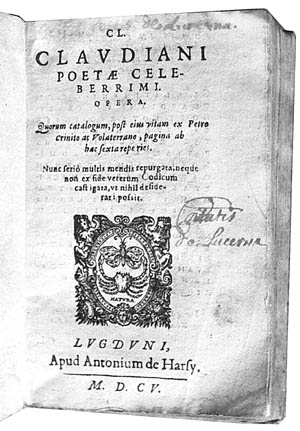 de Lucerna.
CL.
CLAVDIANI
POETÆ CELE-
BERRIMI.
OPERA,
Quorum catalogum, post eius vitam ex Petro
Crinito ac Volaterrano, pagina ab
hac sexta reperies.
Nunc seriò multis mendis repurgata, neque
non ex fide veterum Codicum
castigata, vt nihil deside-
rari possit.
de Lucerna
NATVRA
LVGDVNI,
Apud Antonium de Harsy.
M. D. CV.